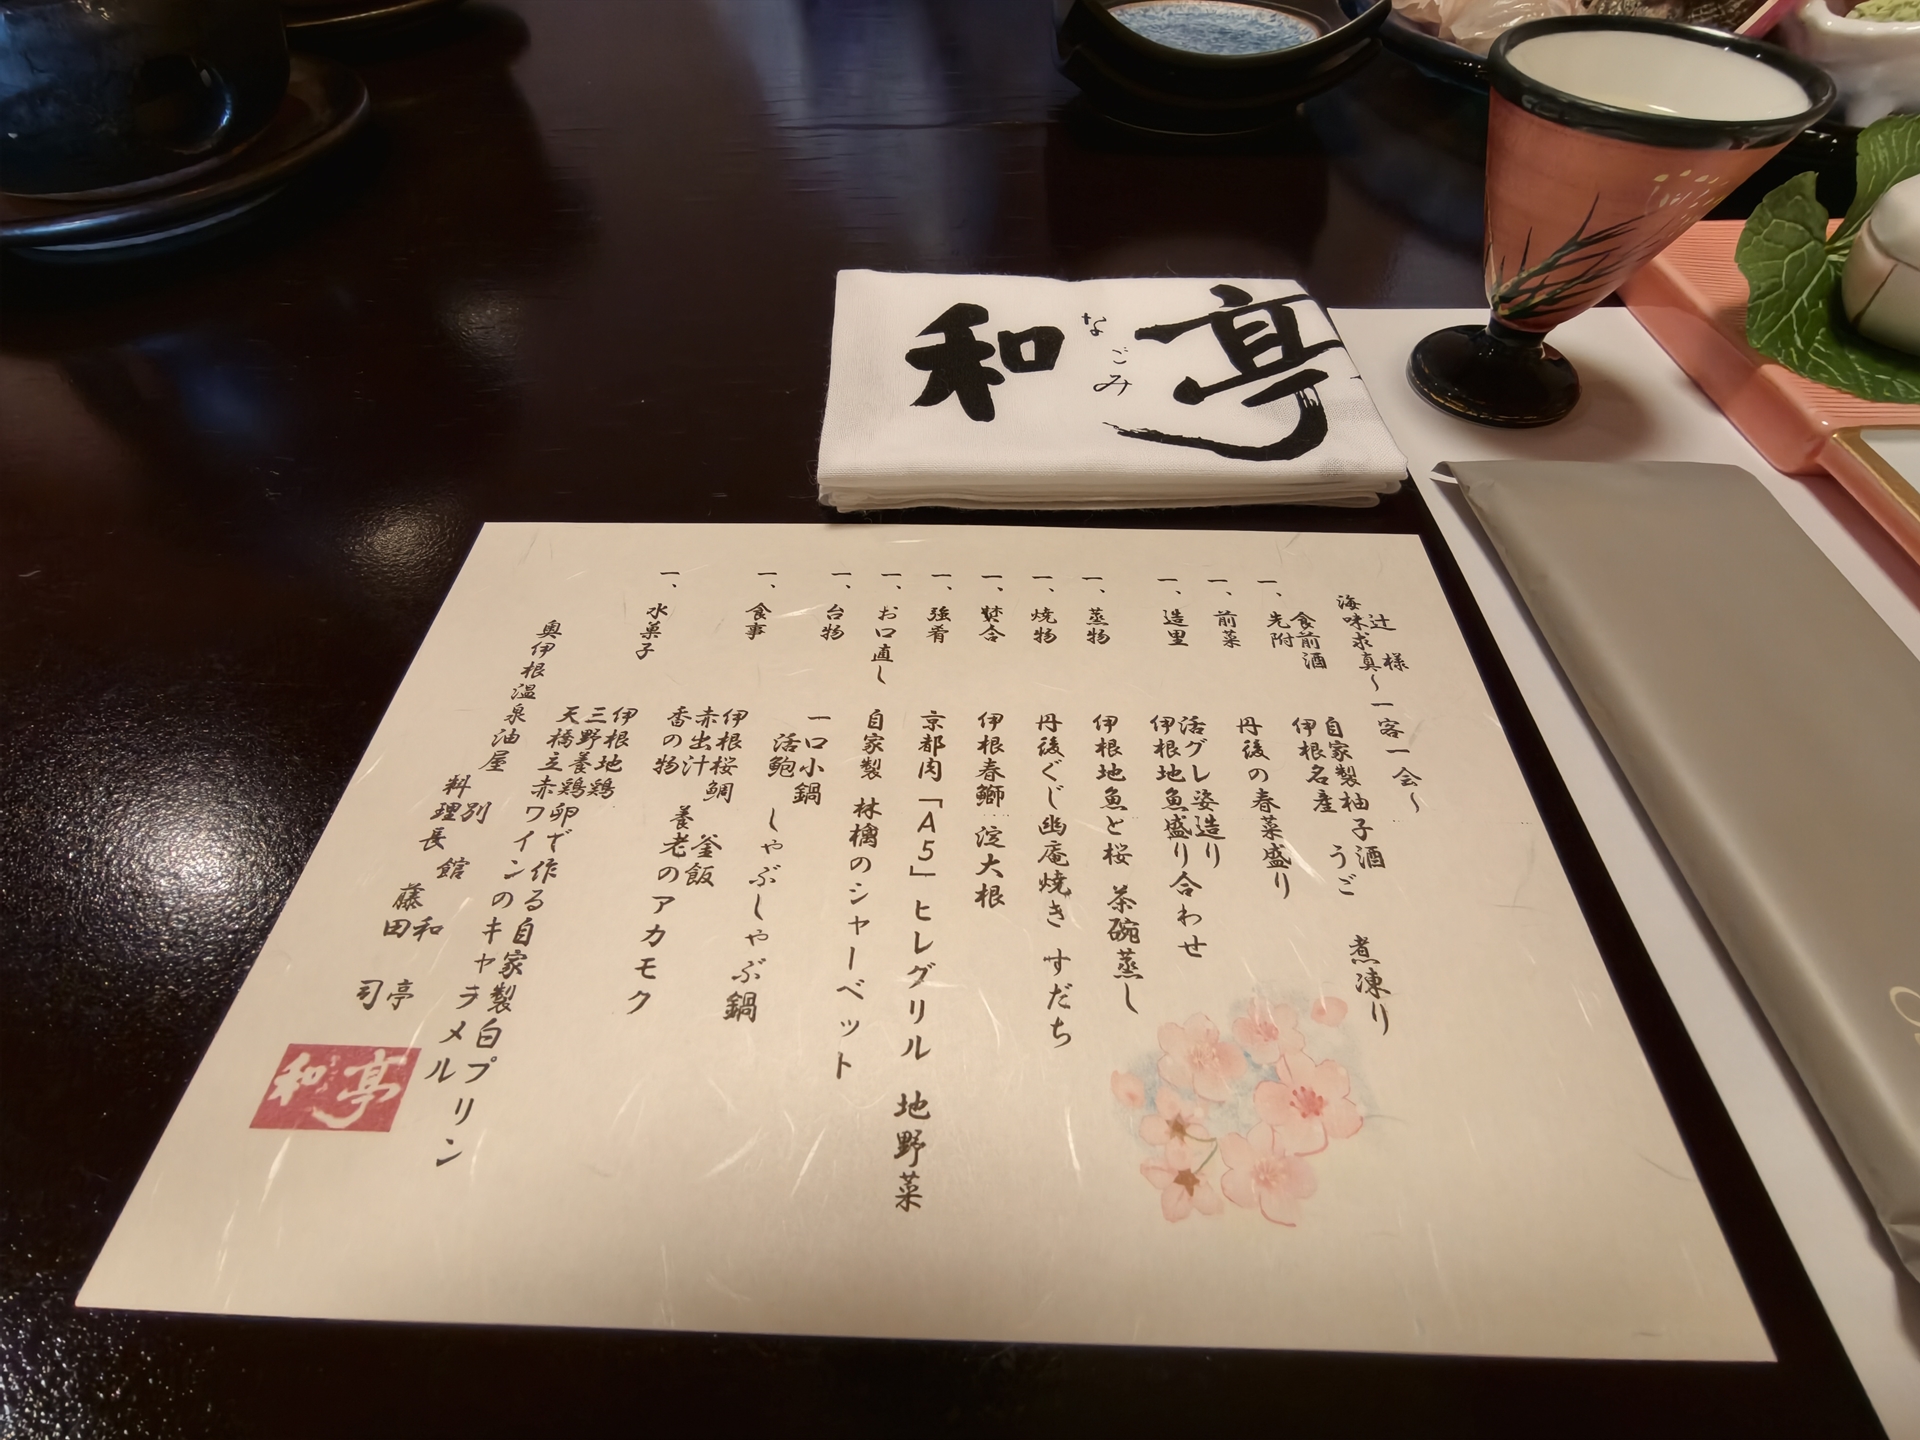 和亭
なごみ
辻 様
海味求真~一客一会~
食前酒 自家製柚子酒
一、先附 伊根名産 うご 煮凍り
一、前菜 丹後の春菜盛り
一、造里 活グレ姿造り
伊根地魚盛り合わせ
一、蒸物 伊根地魚と桜 茶碗蒸し
一、焼物 丹後ぐじ幽庵焼き すだち
一、焚合 伊根春鰤 淀大根
一、強肴 京都肉「A5」ヒレグリル 地野菜
一、お口直し 自家製 林檎のシャーベット
一、台物 一口小鍋
活鮑 しゃぶしゃぶ鍋
一、食事 伊根桜鯛 釜飯
赤出汁 養老のアカモク
香の物
一、水菓子 伊根地鶏
三野養鶏卵で作る自家製白プリン
天橋立赤ワインのキャラメル
奥伊根温泉油屋 別館 和亭
料理長 藤田 司
和亭